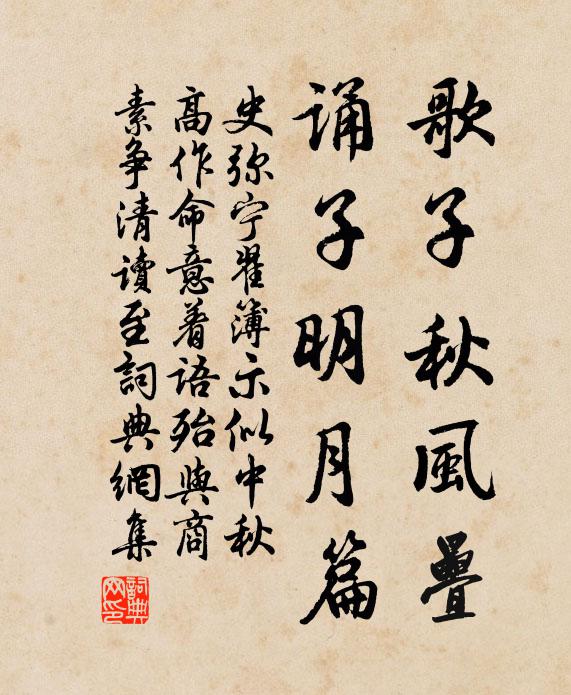 歌子秋風疊
誦子明月篇
史弥宁翟簿示似中秋
高作命意着语殆與商
素争清讀至詞典網集
詞典网印